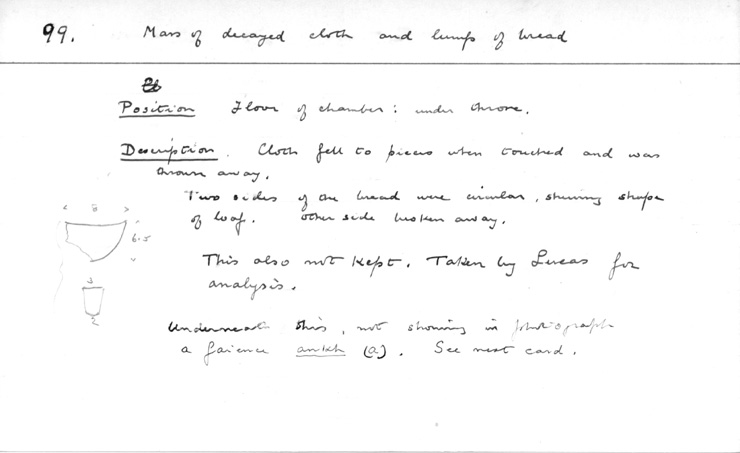 99. Mass of decayed cloth and lumps of bread
Position Floor of chamber: under throne.
Description. Cloth fell to pieces when touched and was
thrown away.
Two sides of one bread were circular, shewing shape
of loaf. Other side broken away.
8
6.5
This also not kept. Taken by Lucas for
analysis.
3
2
Underneath this, not showing in photograph
a faience ankh (a). See next card.